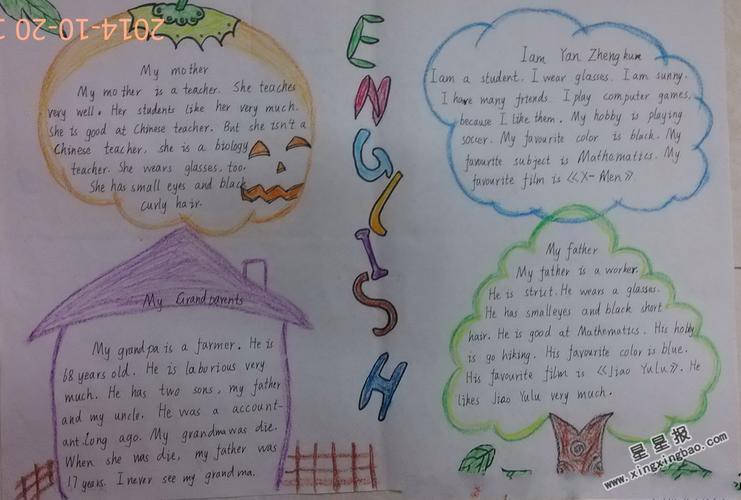 2014-10-20
My mother
My mother is a teacher. She teaches
very well. Her students like her very much.
She is good at Chinese teacher. But she isn't a
Chinese teacher, she is a biology
teacher. She wears glasses, too.
She has small eyes and black
curly hair.
ENGLISH
I am Yan Zheng kun
I am a student. I wear glasses. I am sunny.
I have many friends. I play computer games,
because I like them. My hobby is playing
soccer. My favourite color is black. My
favourite subject is Mathematics. My
favourite film is 《X-Men》.
My Grandparents
My grandpa is a farmer. He is
68 years old. He is laborious very
much. He has two sons, my father
and my uncle. He was a account-
ant long ago. My grandma was die.
When she was die, my father was
17 years. I never see my grandma.
My father
My father is a worker.
He is strict. He wears a glasses.
He has small eyes and black short
hair. He is good at Mathematics. His hobby
is go hiking. His favourite color is blue.
His favourite film is 《Jiao Yulu》. He
likes Jiao Yulu very much.
星星报
www.xingxingbao.com